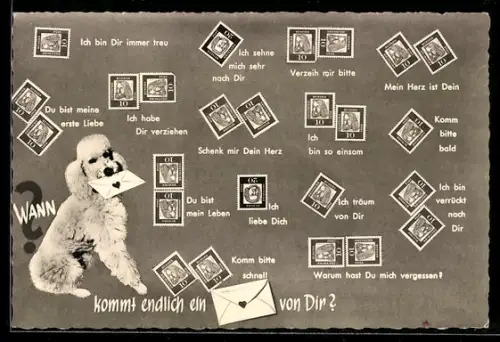 Ich bin Dir immer treu
Ich sehne
mich sehr
nach Dir
Verzeih mir bitte
Mein Herz ist Dein
Du bist meine
erste Liebe
Ich habe
Dir verziehen
Schenk mir Dein Herz
Ich
bin so einsam
Komm
bitte
bald
WANN
?
Du bist
mein Leben
Ich
liebe Dich
Ich träum
von Dir
Ich bin
verrückt
nach
Dir
Komm bitte
schnell
Warum hast Du mich vergessen?
kommt endlich ein
von Dir?